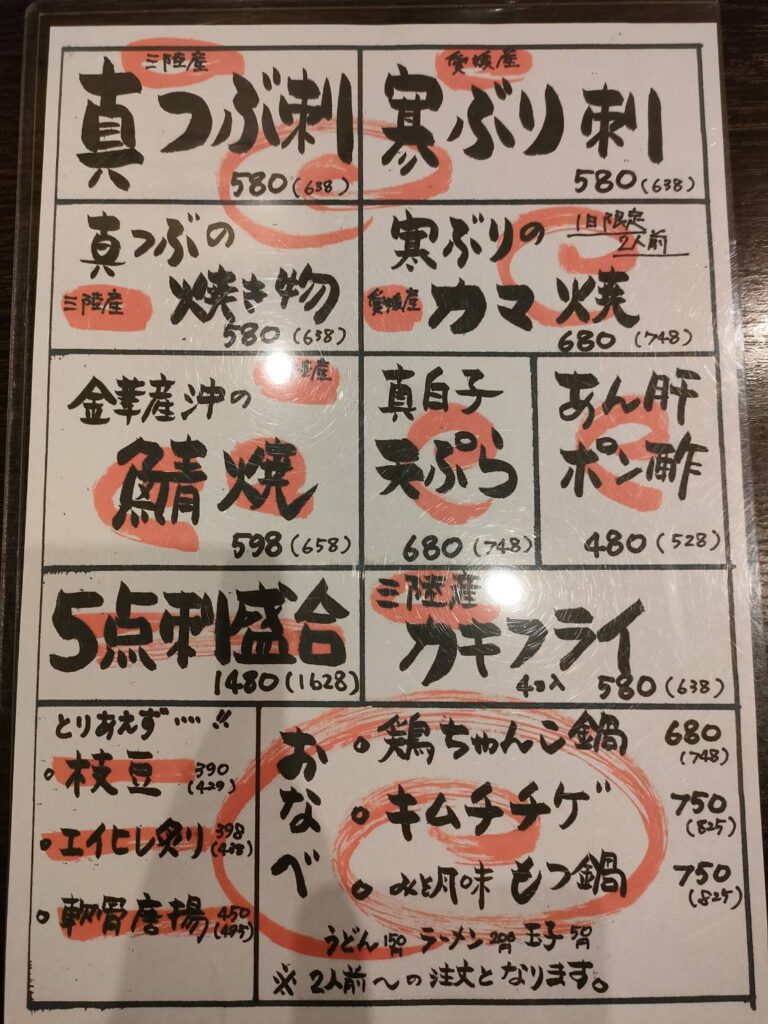 三陸産
真つぶ刺
580(638)
愛媛産
寒ぶり刺
580(638)
真つぶの
三陸産 焼き物
580(638)
寒ぶりの
1日限定
2人前
愛媛産 カマ焼
680(748)
産
金華産沖の
鯖焼
598(658)
真白子
天ぷら
680(748)
あん肝
ポン酢
480(528)
5点刺盛合
1480(1628)
三陸産
カキフライ
4コ入 580(638)
とりあえず・・・・!!
枝豆 390
(429)
エイヒレ炙り 398
(438)
軟骨唐揚 450
(495)
おなべ
鶏ちゃんこ鍋 680
(748)
キムチチゲ 750
(825)
味もつ鍋 750
(825)
うどん150円 ラーメン200円 玉子50円
※2人前〜の注文となります。